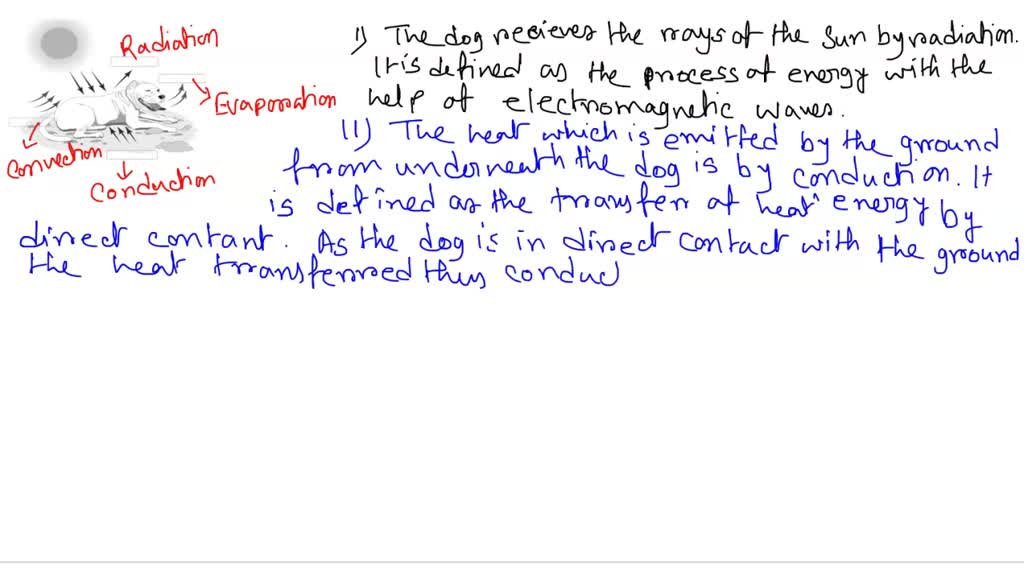 Radiation
Evaporation
Convection
Conduction
I) The dog recieves the rays of the Sun by radiation.
It is defined as the process of energy with the
help of electromagnetic waves.
II) The heat which is emitted by the ground
from underneath the dog is by conduction. It
is defined as the transfer of heat energy by
direct contant. As the dog is in direct contact with the ground
the heat transferred thus conduc